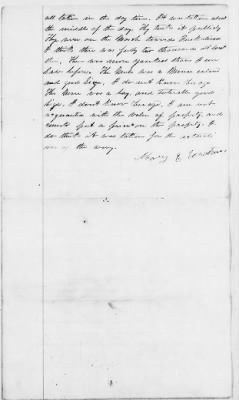 all taken in the day time. It was taken about
the middle of the day. They took it publicly
They were on the March towards
I think there was forty two thousand at least
then. There were more Yankees than I ever
saw before. The Mule was a Brown colored
and good size, I do not know his age
The Mare was a bay, and tolerably good
size, I don't know her age. I am not
acquainted with the value of property and
cannot put a price on the property. I
do think it was taken for the
use of the army.
Mary E